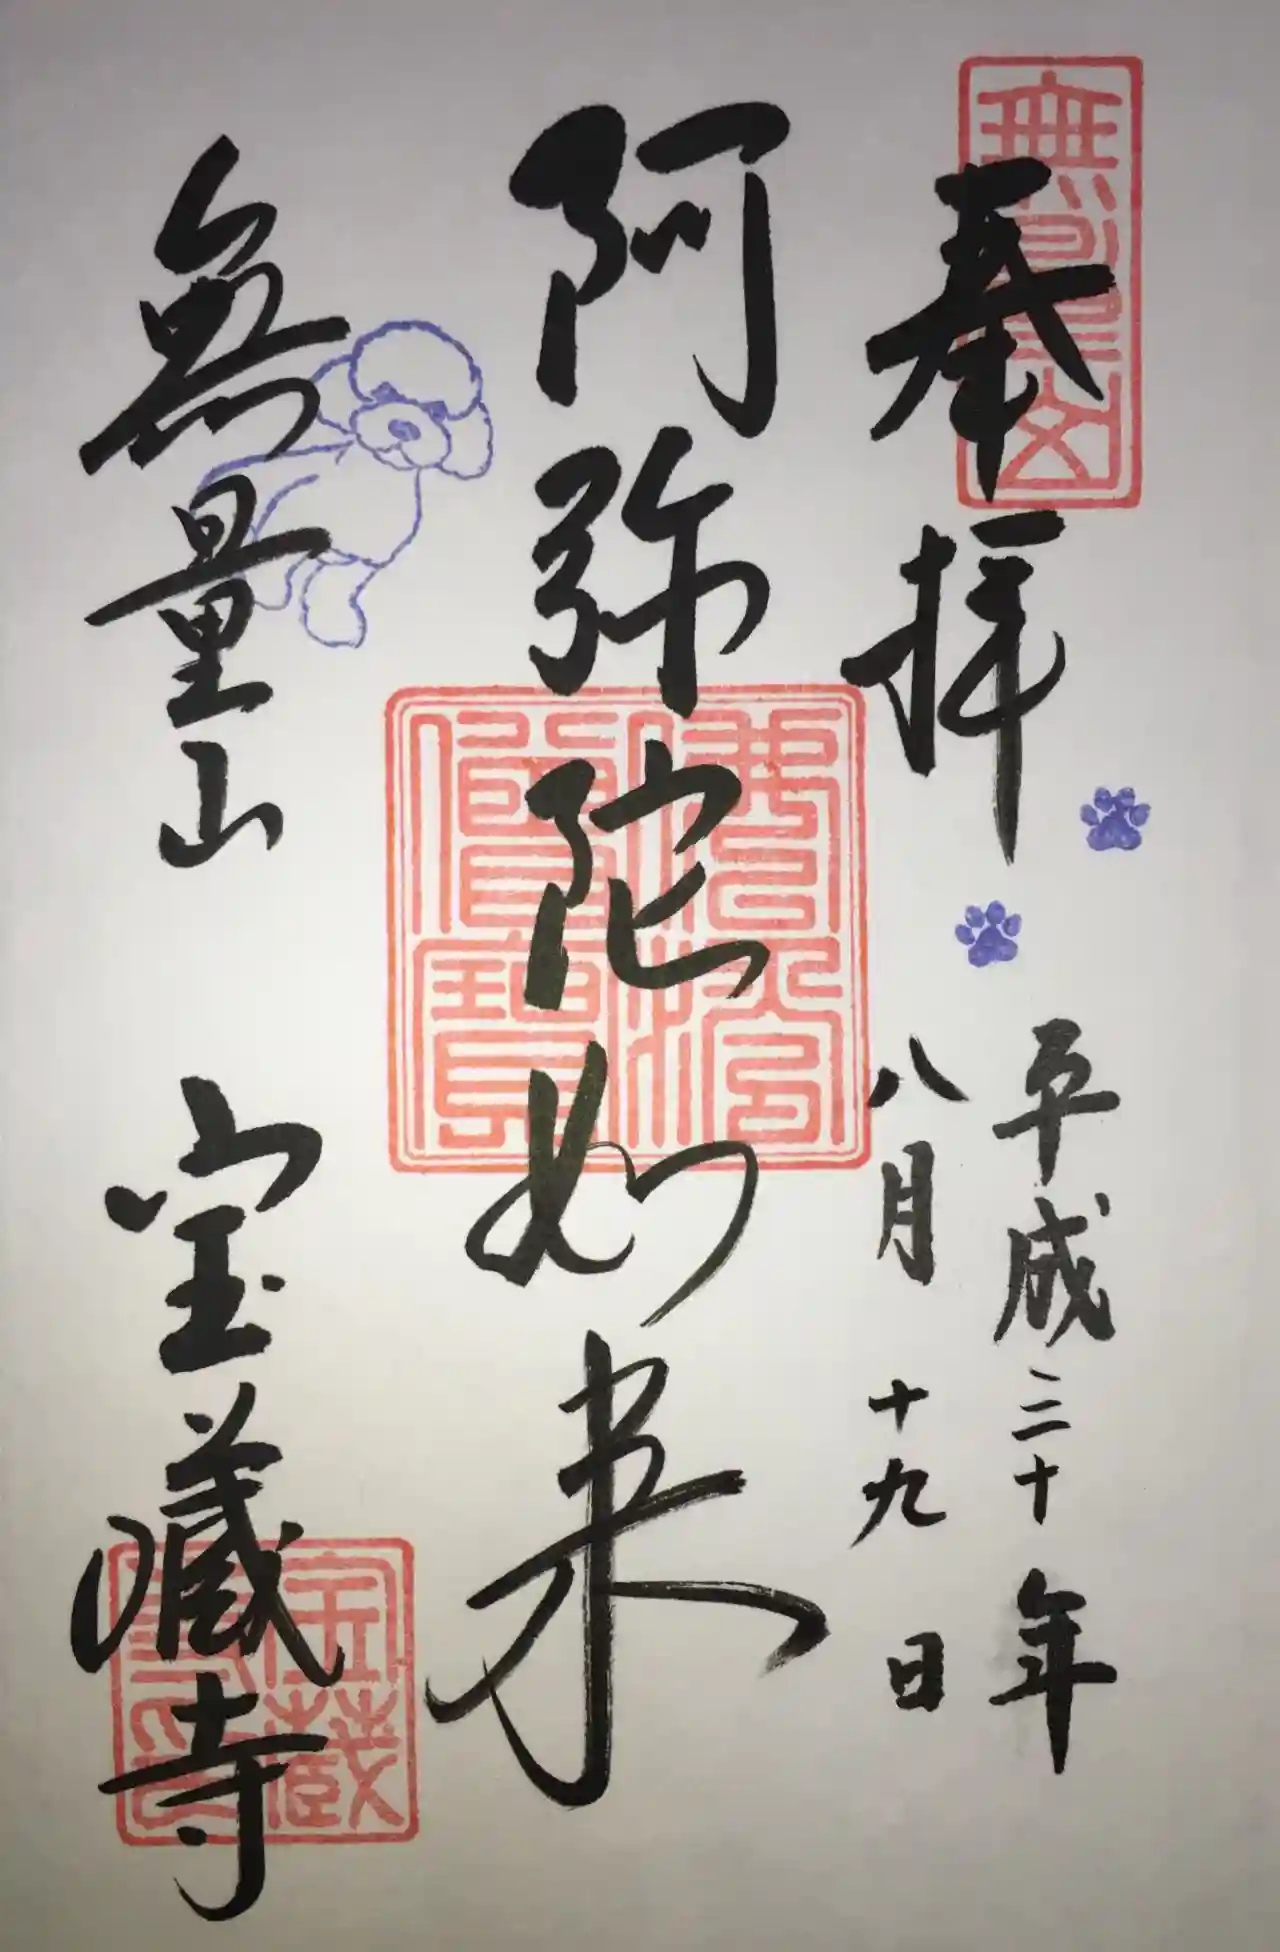 奉拝
平成三十年
八月十九日
阿弥陀如来
無量山
宝蔵寺